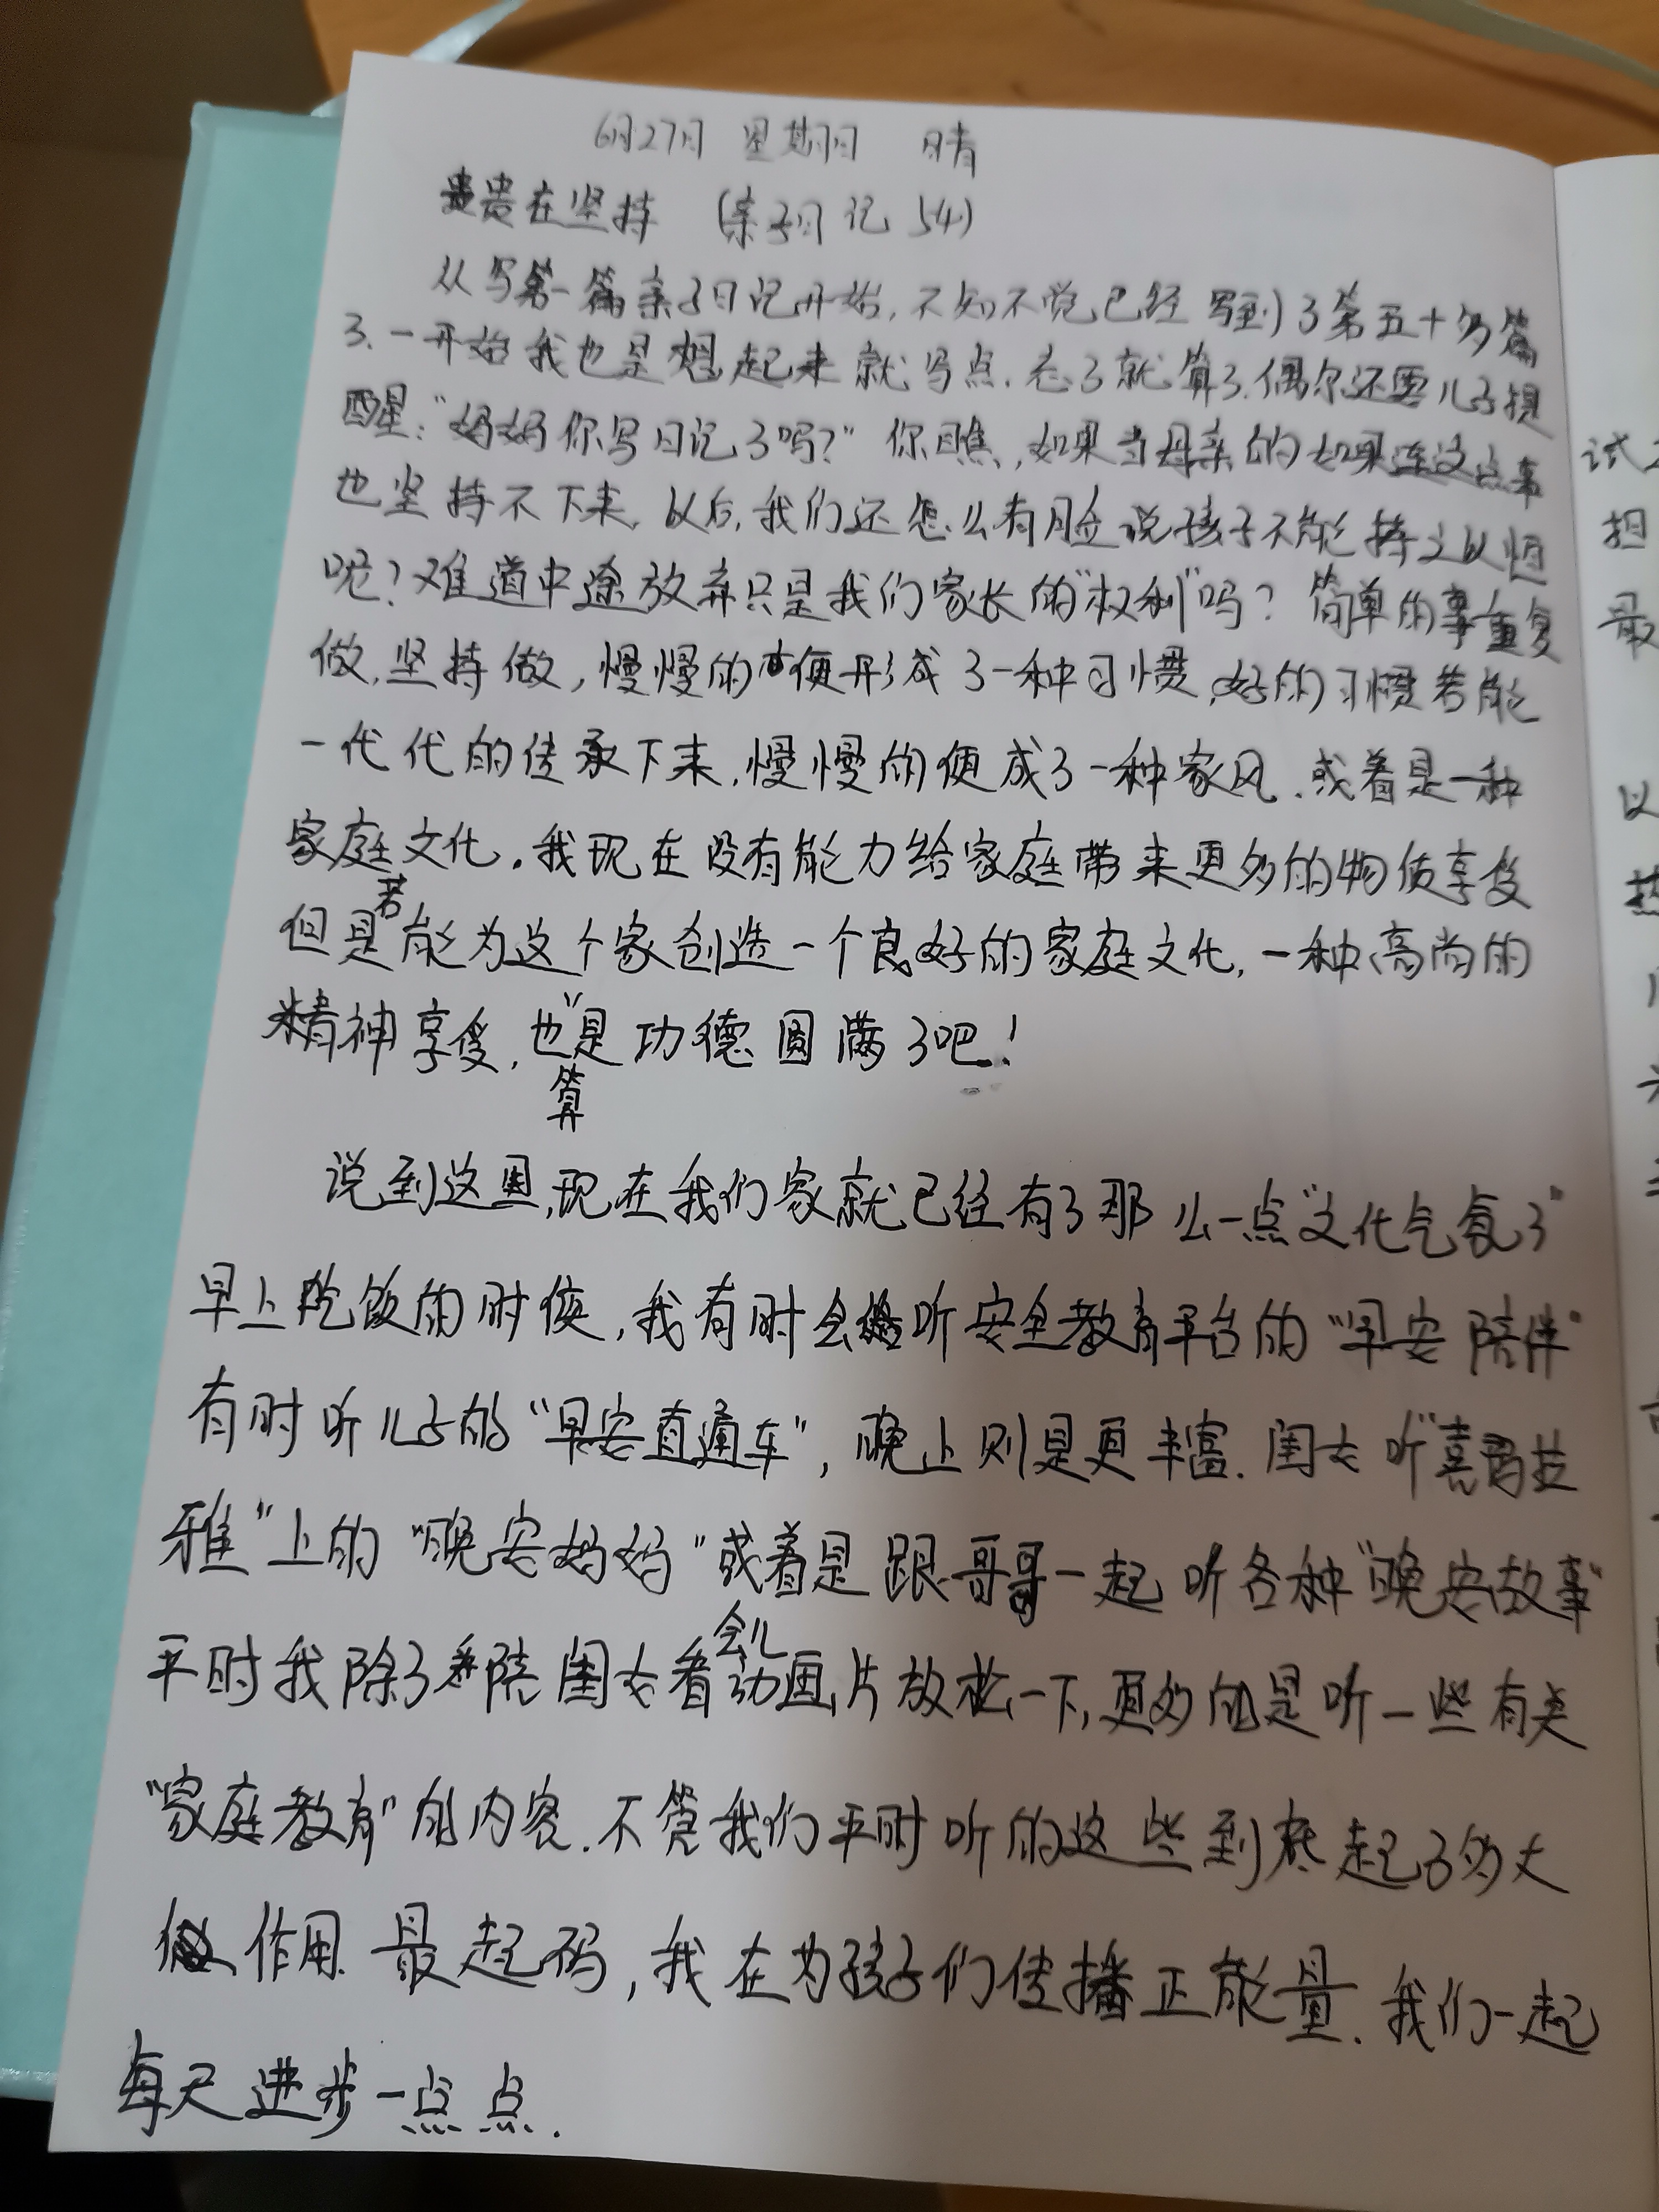 6月27日 星期日 晴
贵在坚持 (亲子日记 54)
从写第一篇亲子日记开始,不知不觉已经写到了第五十多篇
了.一开始我也是想起来就写点.忘了就算了.偶尔还要儿子提
醒:“妈妈你写日记了吗?”你瞧,如果当母亲的如果连这点事
也坚持不下来,以后,我们还怎么有脸说孩子不能持之以恒
呢?难道中途放弃只是我们家长的“权利”吗?简单的事重复
做,坚持做,慢慢的便形成了一种习惯,好的习惯若能
一代代的传承下来,慢慢的便成了一种家风.或着是一种
家庭文化.我现在没有能力给家庭带来更多的物质享受
但是若能为这个家创造一个良好的家庭文化,一种高尚的
精神享受,也算是功德圆满了吧!
说到这里,现在我们家就已经有了那么一点“文化气氛了”
早上吃饭的时候,我有时会听安全教育平台的“早安陪伴”
有时听儿子的“早安直通车”,晚上则是更丰富.闺女听“喜马拉
雅”上的“晚安妈妈”或着是跟哥哥一起听各种“晚安故事”
平时我除了陪闺女看会儿动画片放松一下,更多的是听一些有关
“家庭教育”的内容.不管我们平时听的这些到底起了多大
作用.最起码,我在为孩子们传播正能量.我们一起
每天进步一点点.
试
担
最
以